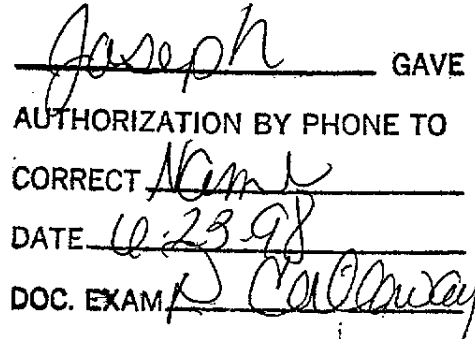 Joseph GAVE
AUTHORIZATION BY PHONE TO
CORRECT Name
DATE 6-23-98
DOC. EXAM N Callaway